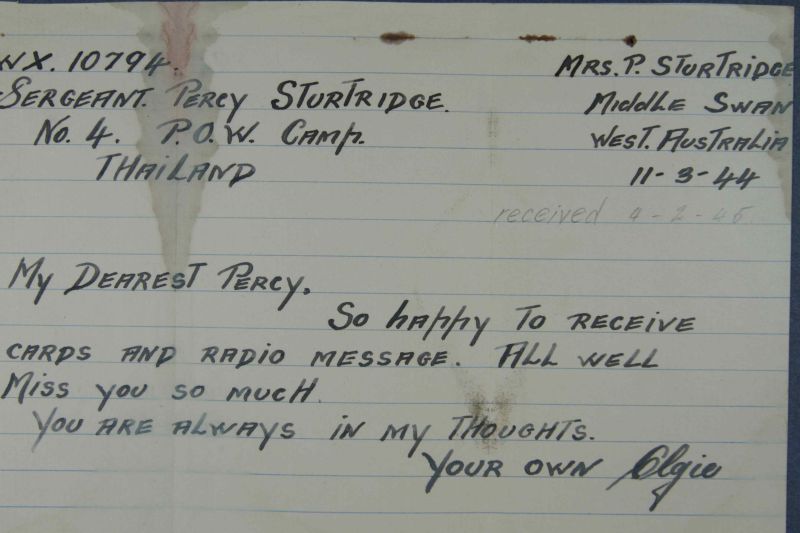 WX. 10794.
SERGEANT. PERCY STURTRIDGE.
No. 4. P.O.W. CAMP.
THAILAND
MRS. P. STURTRIDGE
MIDDLE SWAN
WEST. AUSTRALIA
11-3-44
received 9-2-45.
My DEAREST PERCY.
So happy To RECEIVE
CARDS AND RADIO MESSAGE. ALL WELL
MISS you so mucH.
YOU ARE ALWAYS IN my THOUGHTS.
YOUR OWN Elgie